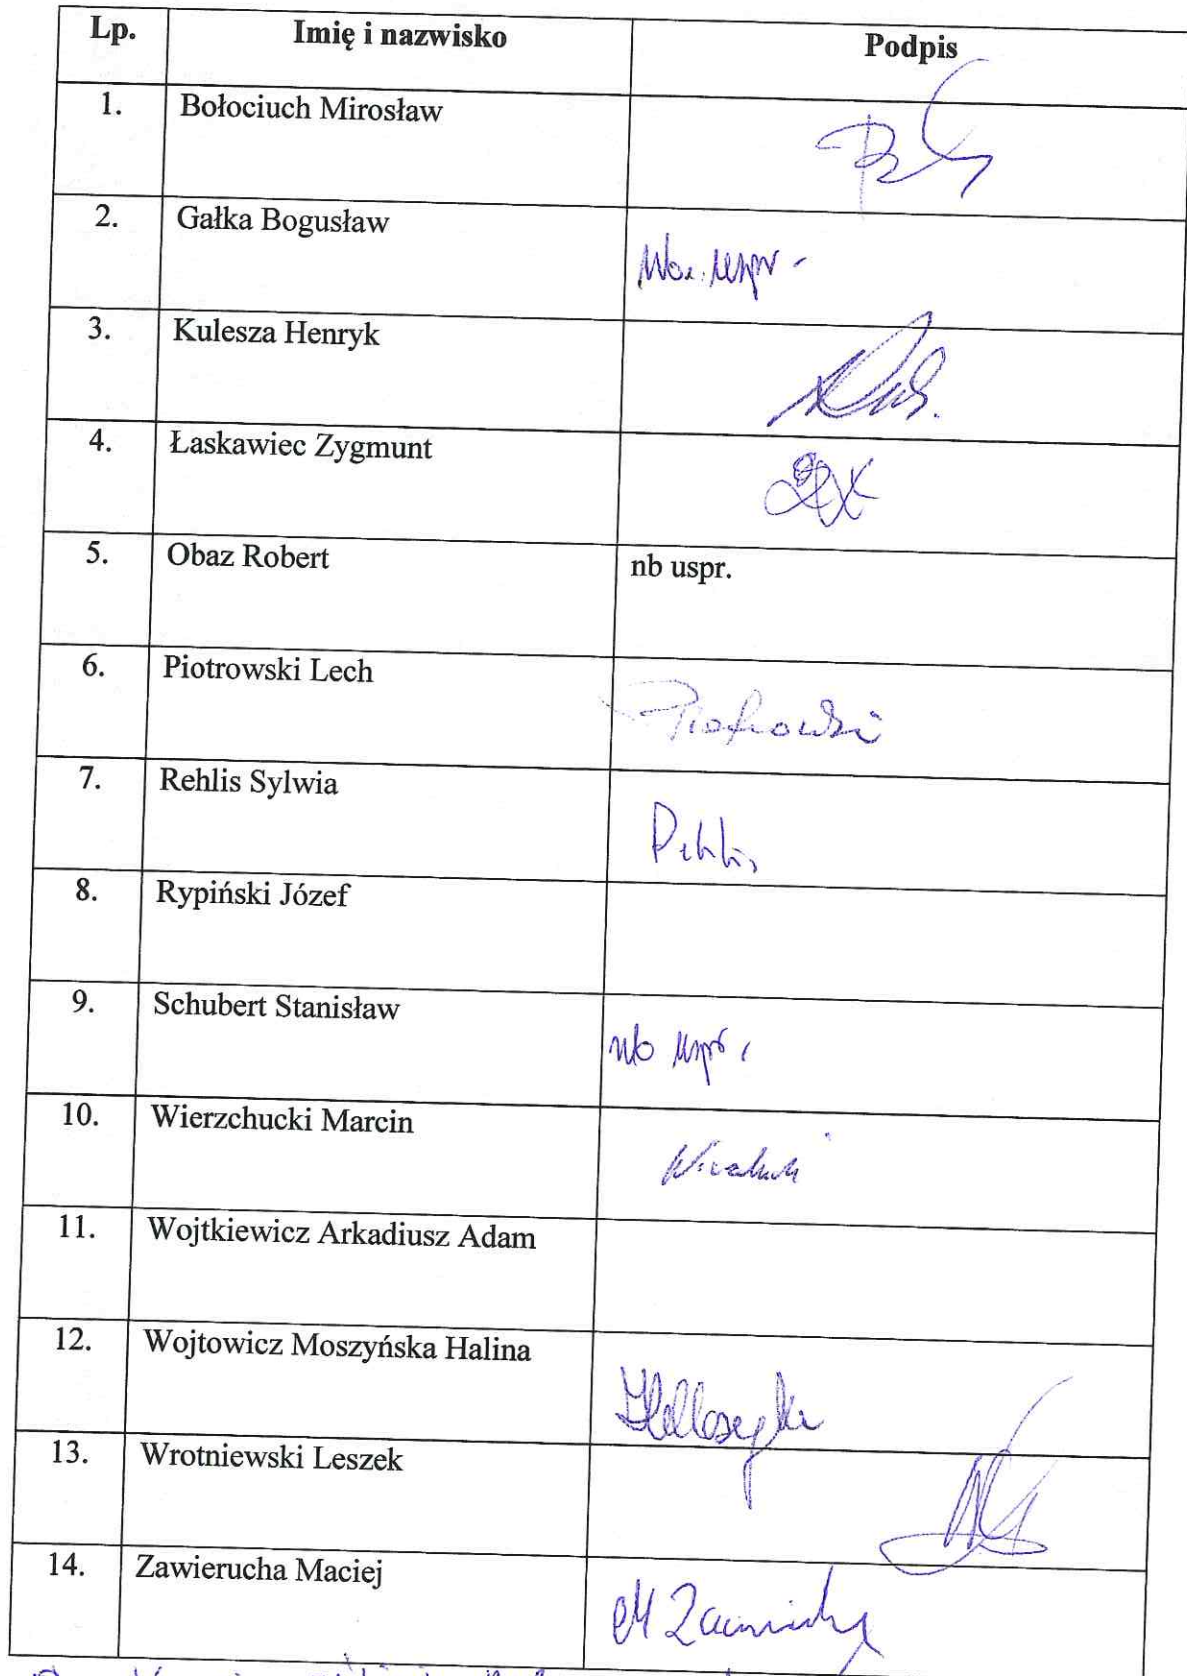 Lp. Imię i nazwisko Podpis
1. Bołociuch Mirosław
2. Gałka Bogusław
3. Kulesza Henryk
4. Łaskawiec Zygmunt
5. Obaz Robert nb uspr.
6. Piotrowski Lech Piotrowski
7. Rehlis Sylwia
8. Rypiński Józef
9. Schubert Stanisław nb uspr.
10. Wierzchucki Marcin
11. Wojtkiewicz Arkadiusz Adam
12. Wojtowicz Moszyńska Halina
13. Wrotniewski Leszek
14. Zawierucha Maciej